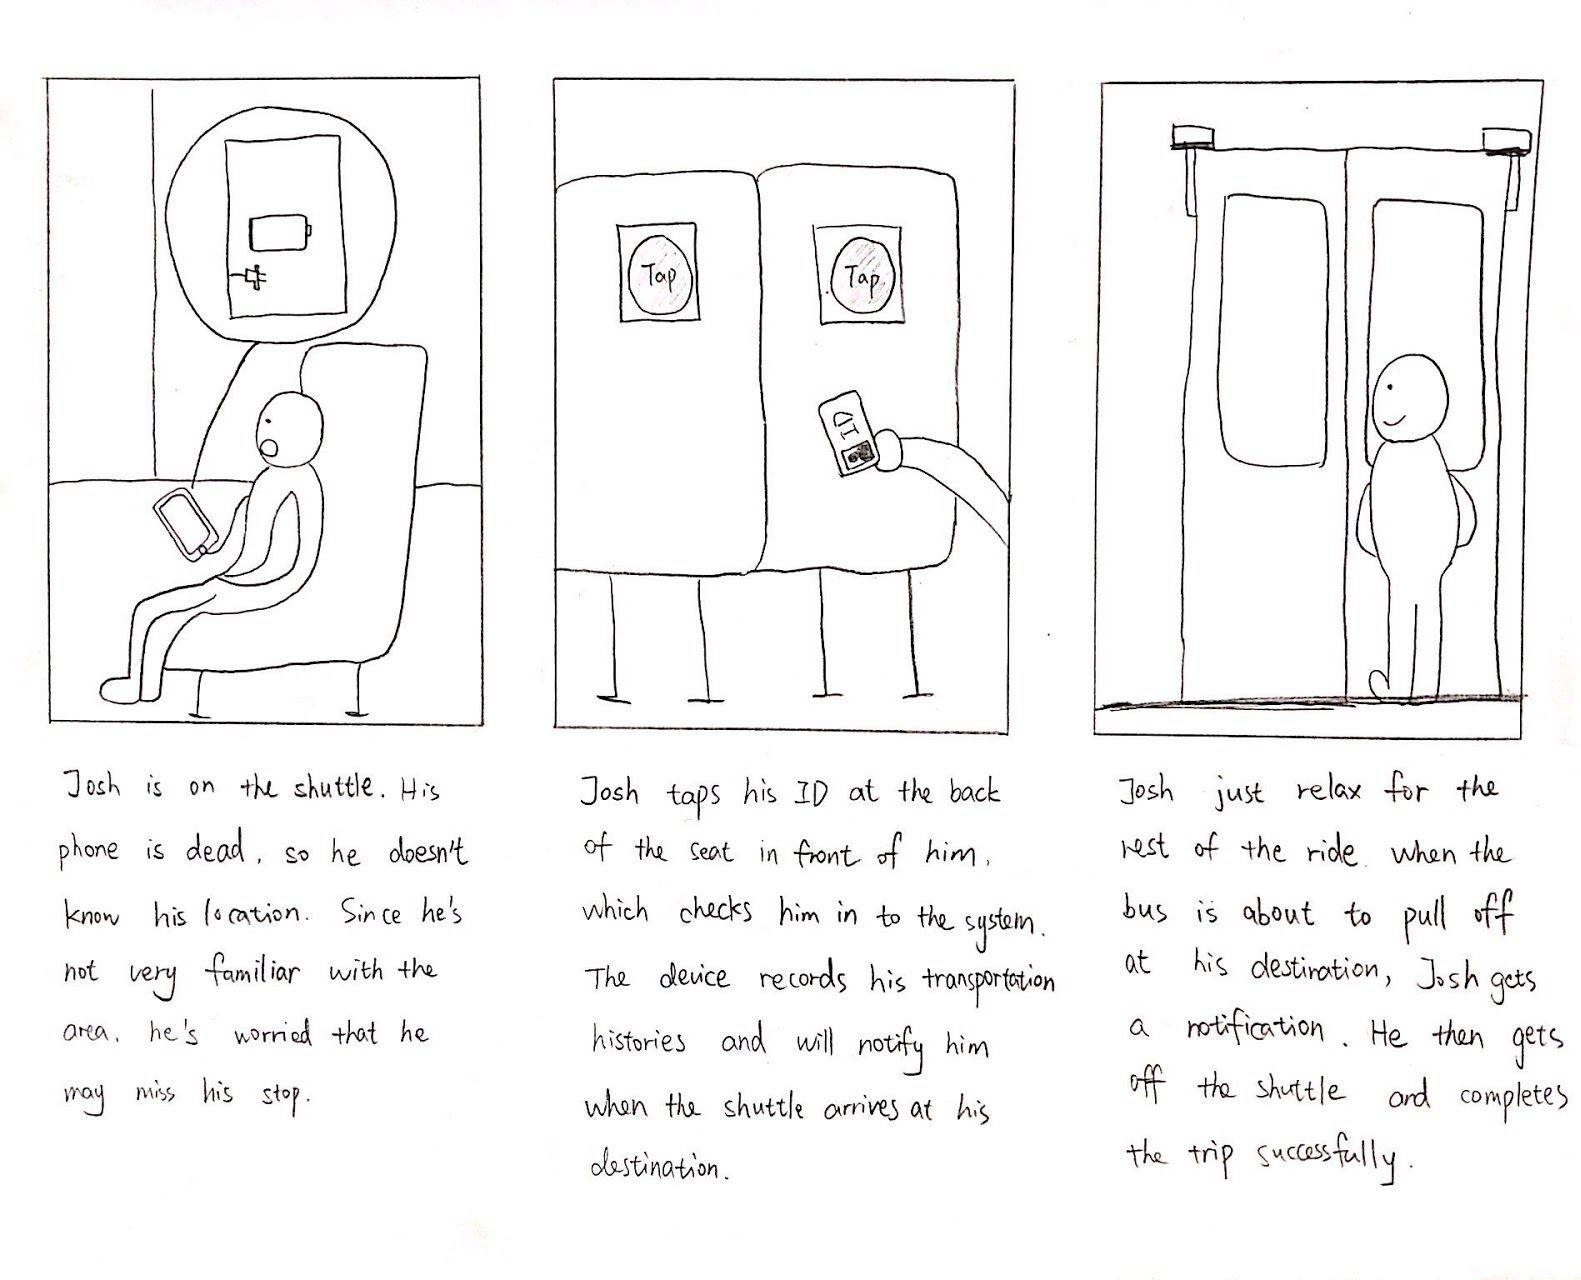 Tap
Tap
ID
Josh is on the shuttle. His
phone is dead, so he doesn't
know his location. Since he's
not very familiar with the
area, he's worried that he
may miss his stop.
Josh taps his ID at the back
of the seat in front of him,
which checks him in to the system.
The device records his transportation
histories and will notify him
when the shuttle arrives at his
destination.
Josh just relax for the
rest of the ride. when the
bus is about to pull off
at his destination, Josh gets
a notification. He then gets
off the shuttle and completes
the trip successfully.